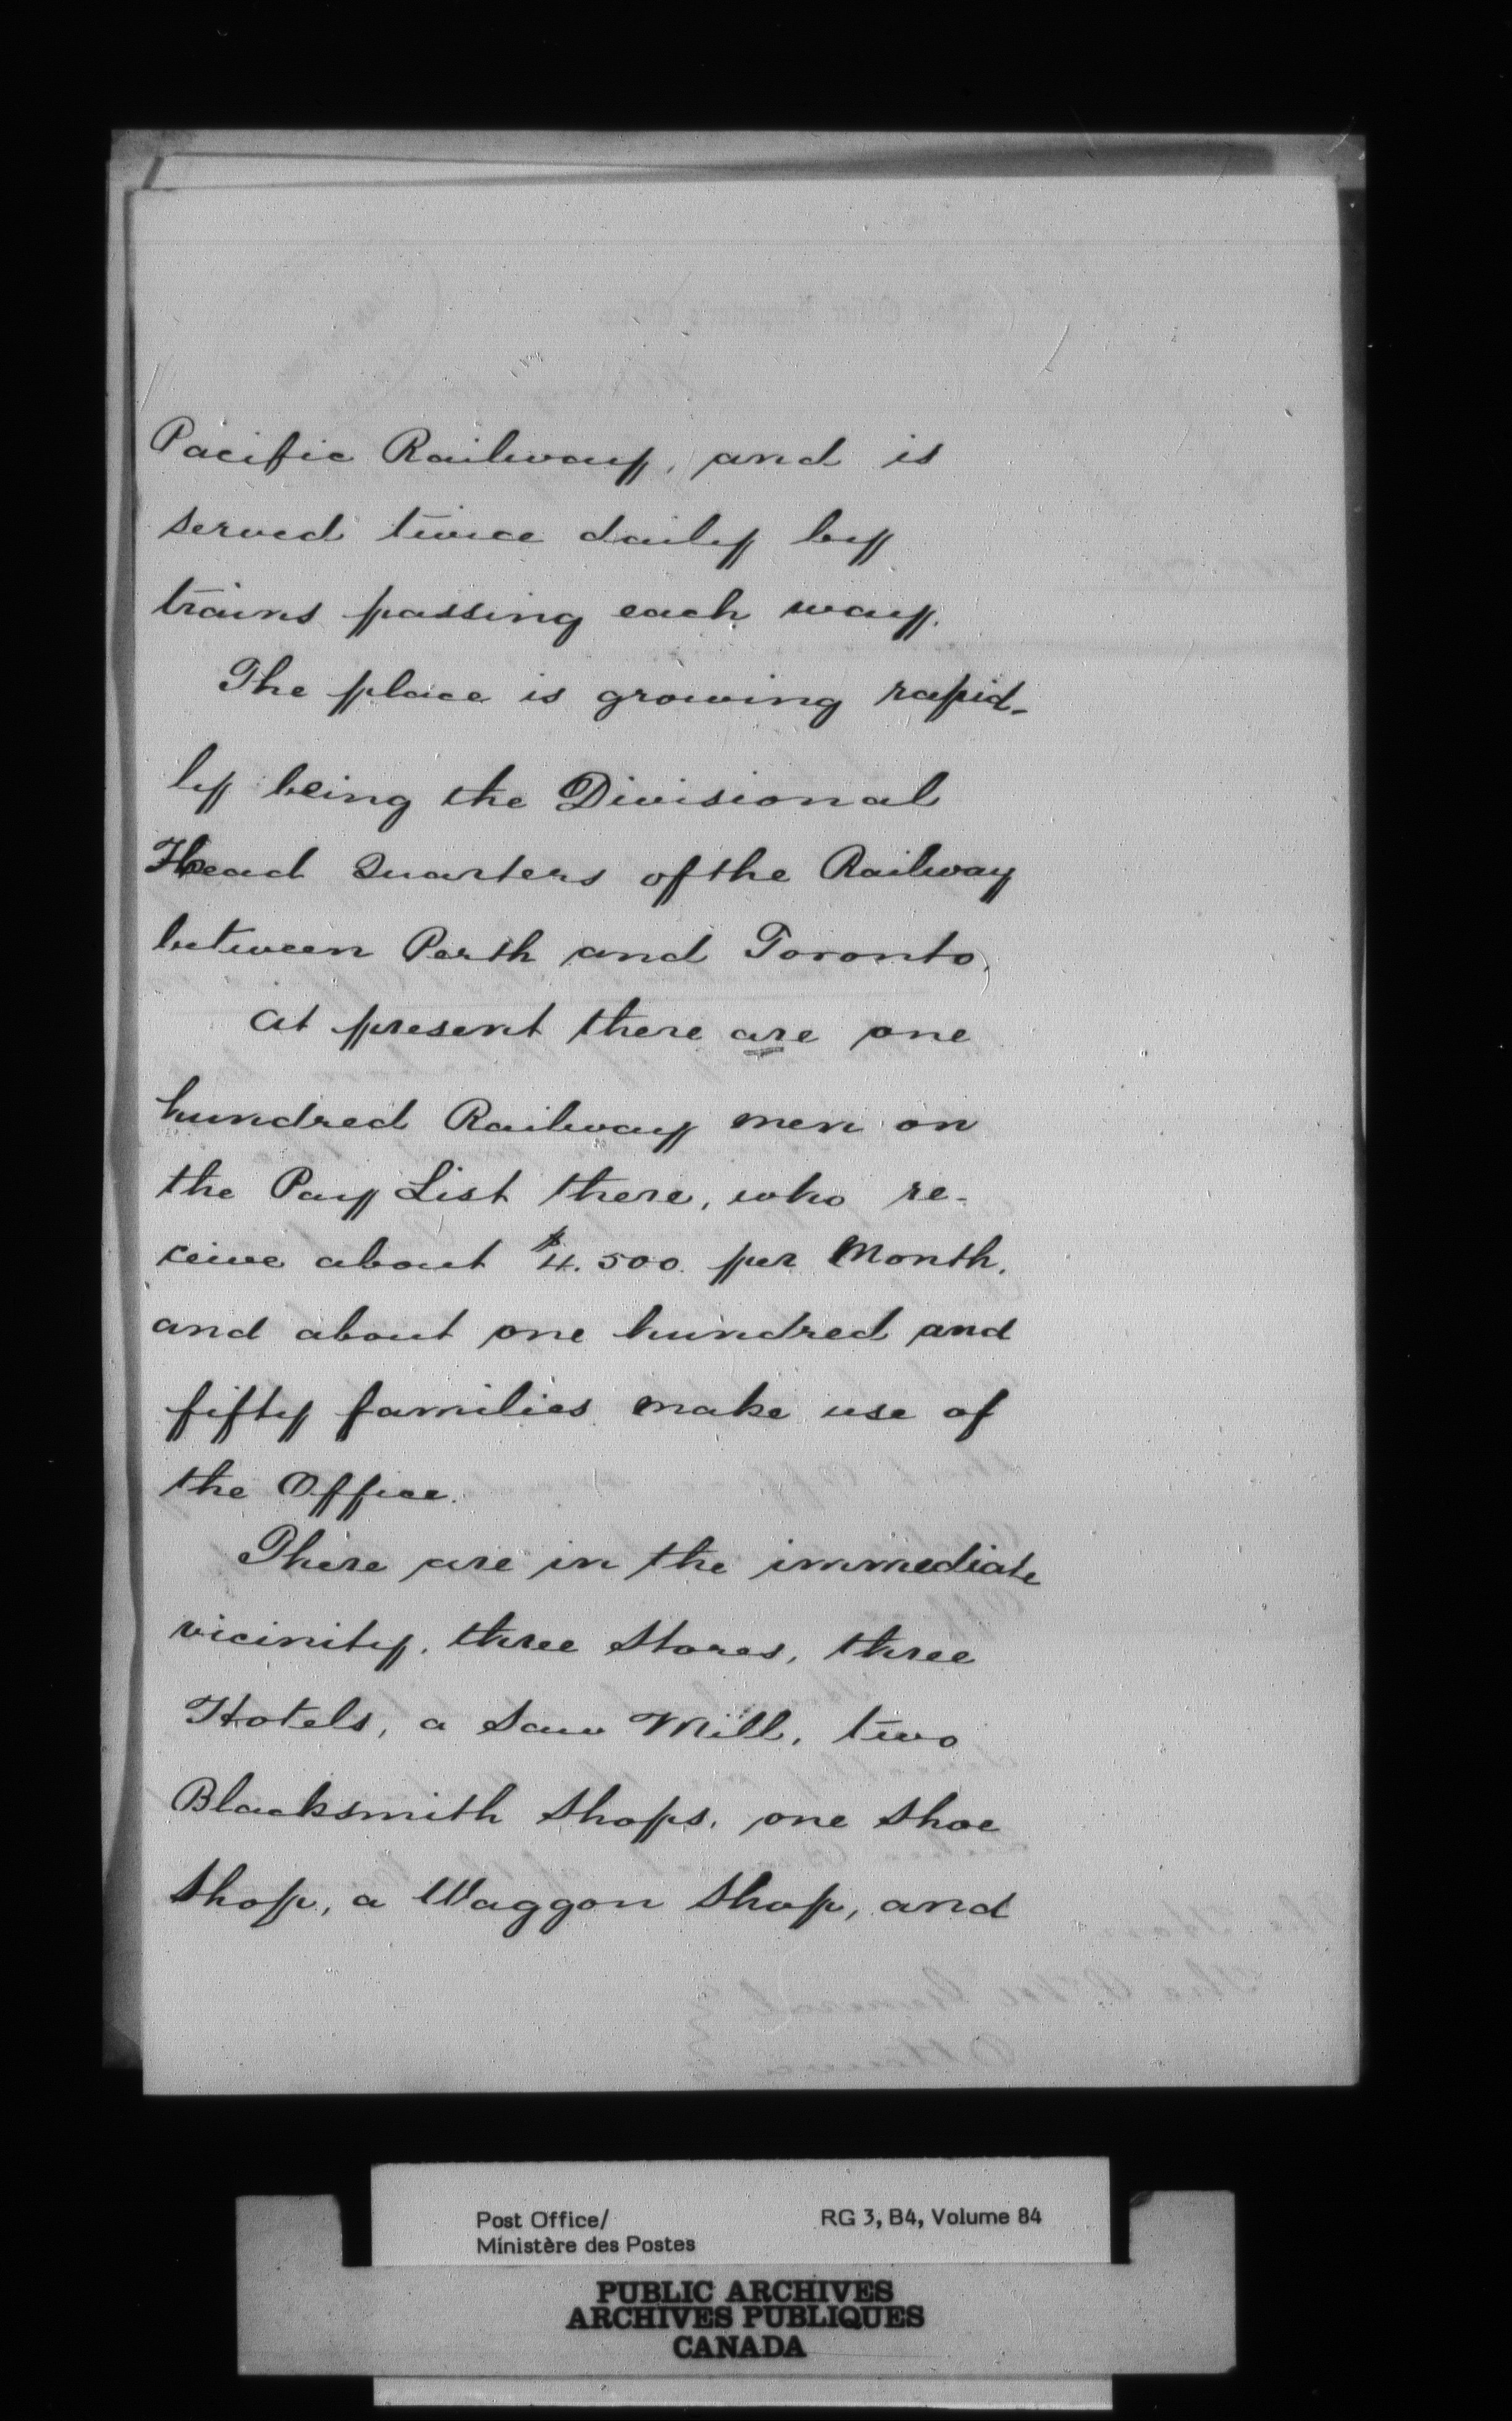 Pacific Railway, and is
served twice daily by
trains passing each way.
The place is growing rapid-
ly being the Divisional
Head Quarters of the Railway
between Perth and Toronto.
At present there are one
hundred Railway men on
the Pay List there, who re-
ceive about $4.500 per Month,
and about one hundred and
fifty families make use of
the Office.
There are in the immediate
vicinity, three Stores, three
Hotels, a Saw Mill, two
Blacksmith Shops, one Shoe
Shop, a Waggon Shop, and
Post Office/
Ministère des Postes
RG 3, B4, Volume 84
PUBLIC ARCHIVES
ARCHIVES PUBLIQUES
CANADA